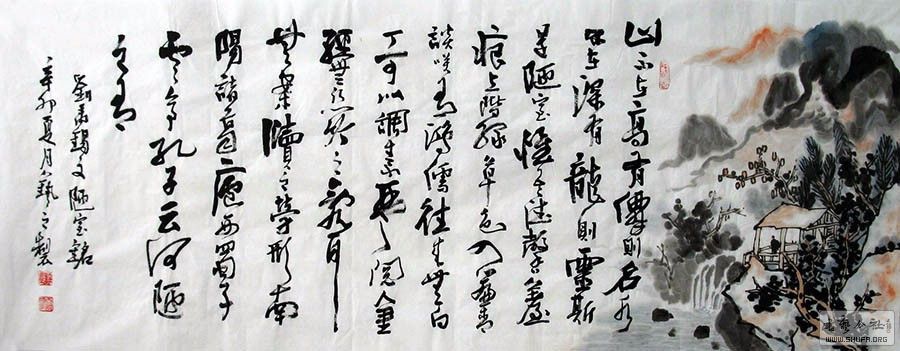 山不在高有僊則名水
不在深有龍則靈斯
是陋室惟吾德馨苔
痕上階綠草色入簾青
談笑有鴻儒往來無白
丁可以調素琴閱金
經無絲竹之亂耳
無案牘之勞形南
陽諸葛廬西蜀子
雲亭孔子云何陋
之有
劉禹錫文陋室銘
辛卯夏月藝之製
WWW.SHUFA.ORG